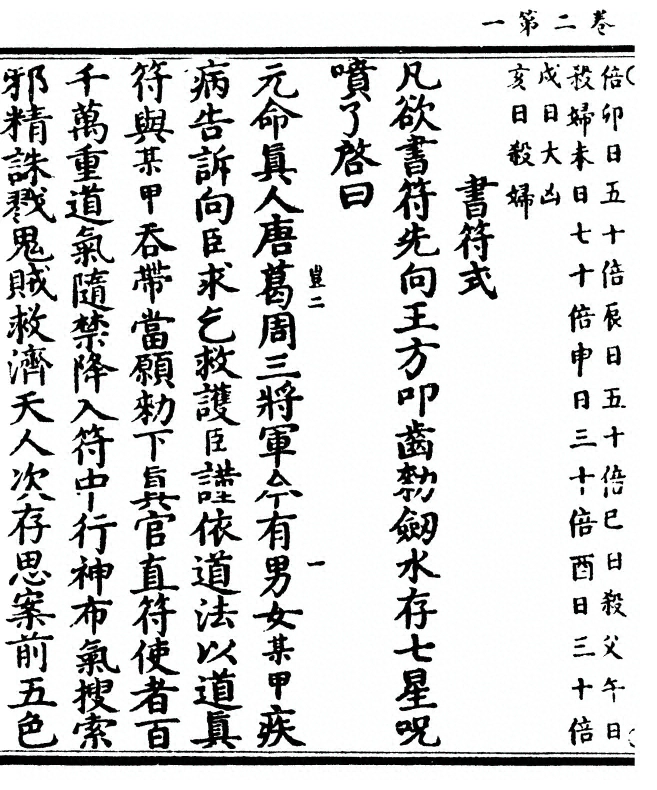 卷二第一
倍卯日五十倍辰日五十倍巳日殺父午日
殺婦未日七十倍申日三十倍酉日三十倍
戌日大凶
亥日殺婦
書符式
凡欲書符先向王方叩齒勑劒水存七星呪
噴了啓曰
元命眞人唐葛周三將軍今有男女某甲疾
二
一
病告訴向臣求乞救護臣謹依道法以道眞
符與某甲吞帶當願勑下眞官直符使者百
千萬重道氣隨禁降入符中行神布氣搜索
邪精誅戮鬼賊救濟天人次存思案前五色